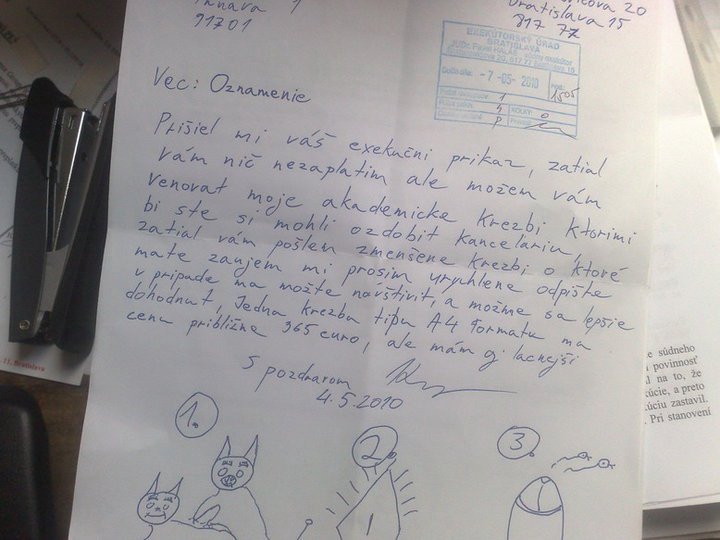 91701
Bratislava 15
817 77
EXEKÚTORSKÝ ÚRAD
BRATISLAVA
-7-05-2010
1505
Vec: Oznamenie
Prišiel mi váš exekučni prikaz, zatial
vám nič nezaplatim ale možem vám
venovat moje akademicke krezbi ktorimi
bi ste si mohli ozdobit kancelariu,
zatial vám pošlem zmenšene krezbi o ktoré
mate zaujem mi prosim urychlene odpište
v pripade ma možte navštivit, a možme sa lepšie
dohodnut, Jedna krezba tipu A4 formatu ma
cenu približne 365 euro, ale mám aj lacnejši
S pozdravom
4.5.2010
1.
2.
3.
11. Bratislava
súdneho
povinnosť
na to, že
a preto
zastavil.
Pri stanovení